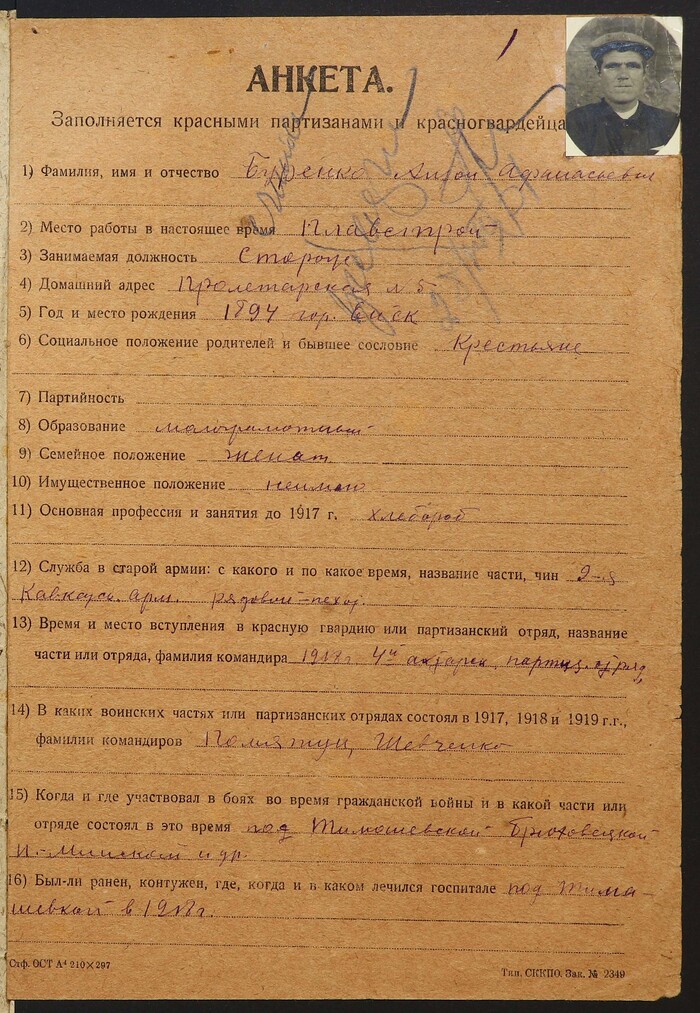 1
АНКЕТА.
Заполняется красными партизанами и красногвардейца
1) Фамилия, имя и отчество Афанасьевич
2) Место работы в настоящее время Плавстрой
3) Занимаемая должность Сторож
4) Домашний адрес Пролетарская № 5
5) Год и место рождения 1894 гор. Ейск
6) Социальное положение родителей и бывшее сословие Крестьяне
7) Партийность
8) Образование малограмотный
9) Семейное положение женат
10) Имущественное положение неимею
11) Основная профессия и занятия до 1917 г. хлебороб
12) Служба в старой армии: с какого и по какое время, название части, чин 9-я
Кавказс. Арм. рядовой-пехот.
13) Время и место вступления в красную гвардию или партизанский отряд, название
части или отряда, фамилия командира 1918г. 4й ахтарск. партиз. отряд
14) В каких воинских частях или партизанских отрядах состоял в 1917, 1918 и 1919 г.г.,
фамилии командиров Шевченко
15) Когда и где участвовал в боях во время гражданской войны и в какой части или
отряде состоял в это время под Тимошевской Брюховецкой
и др.
16) Был-ли ранен, контужен, где, когда и в каком лечился госпитале под Тима-
шевкой в 1918г.
Стф. ОСТ А⁴ 210×297
Тип. СККПО. Зак. № 2349